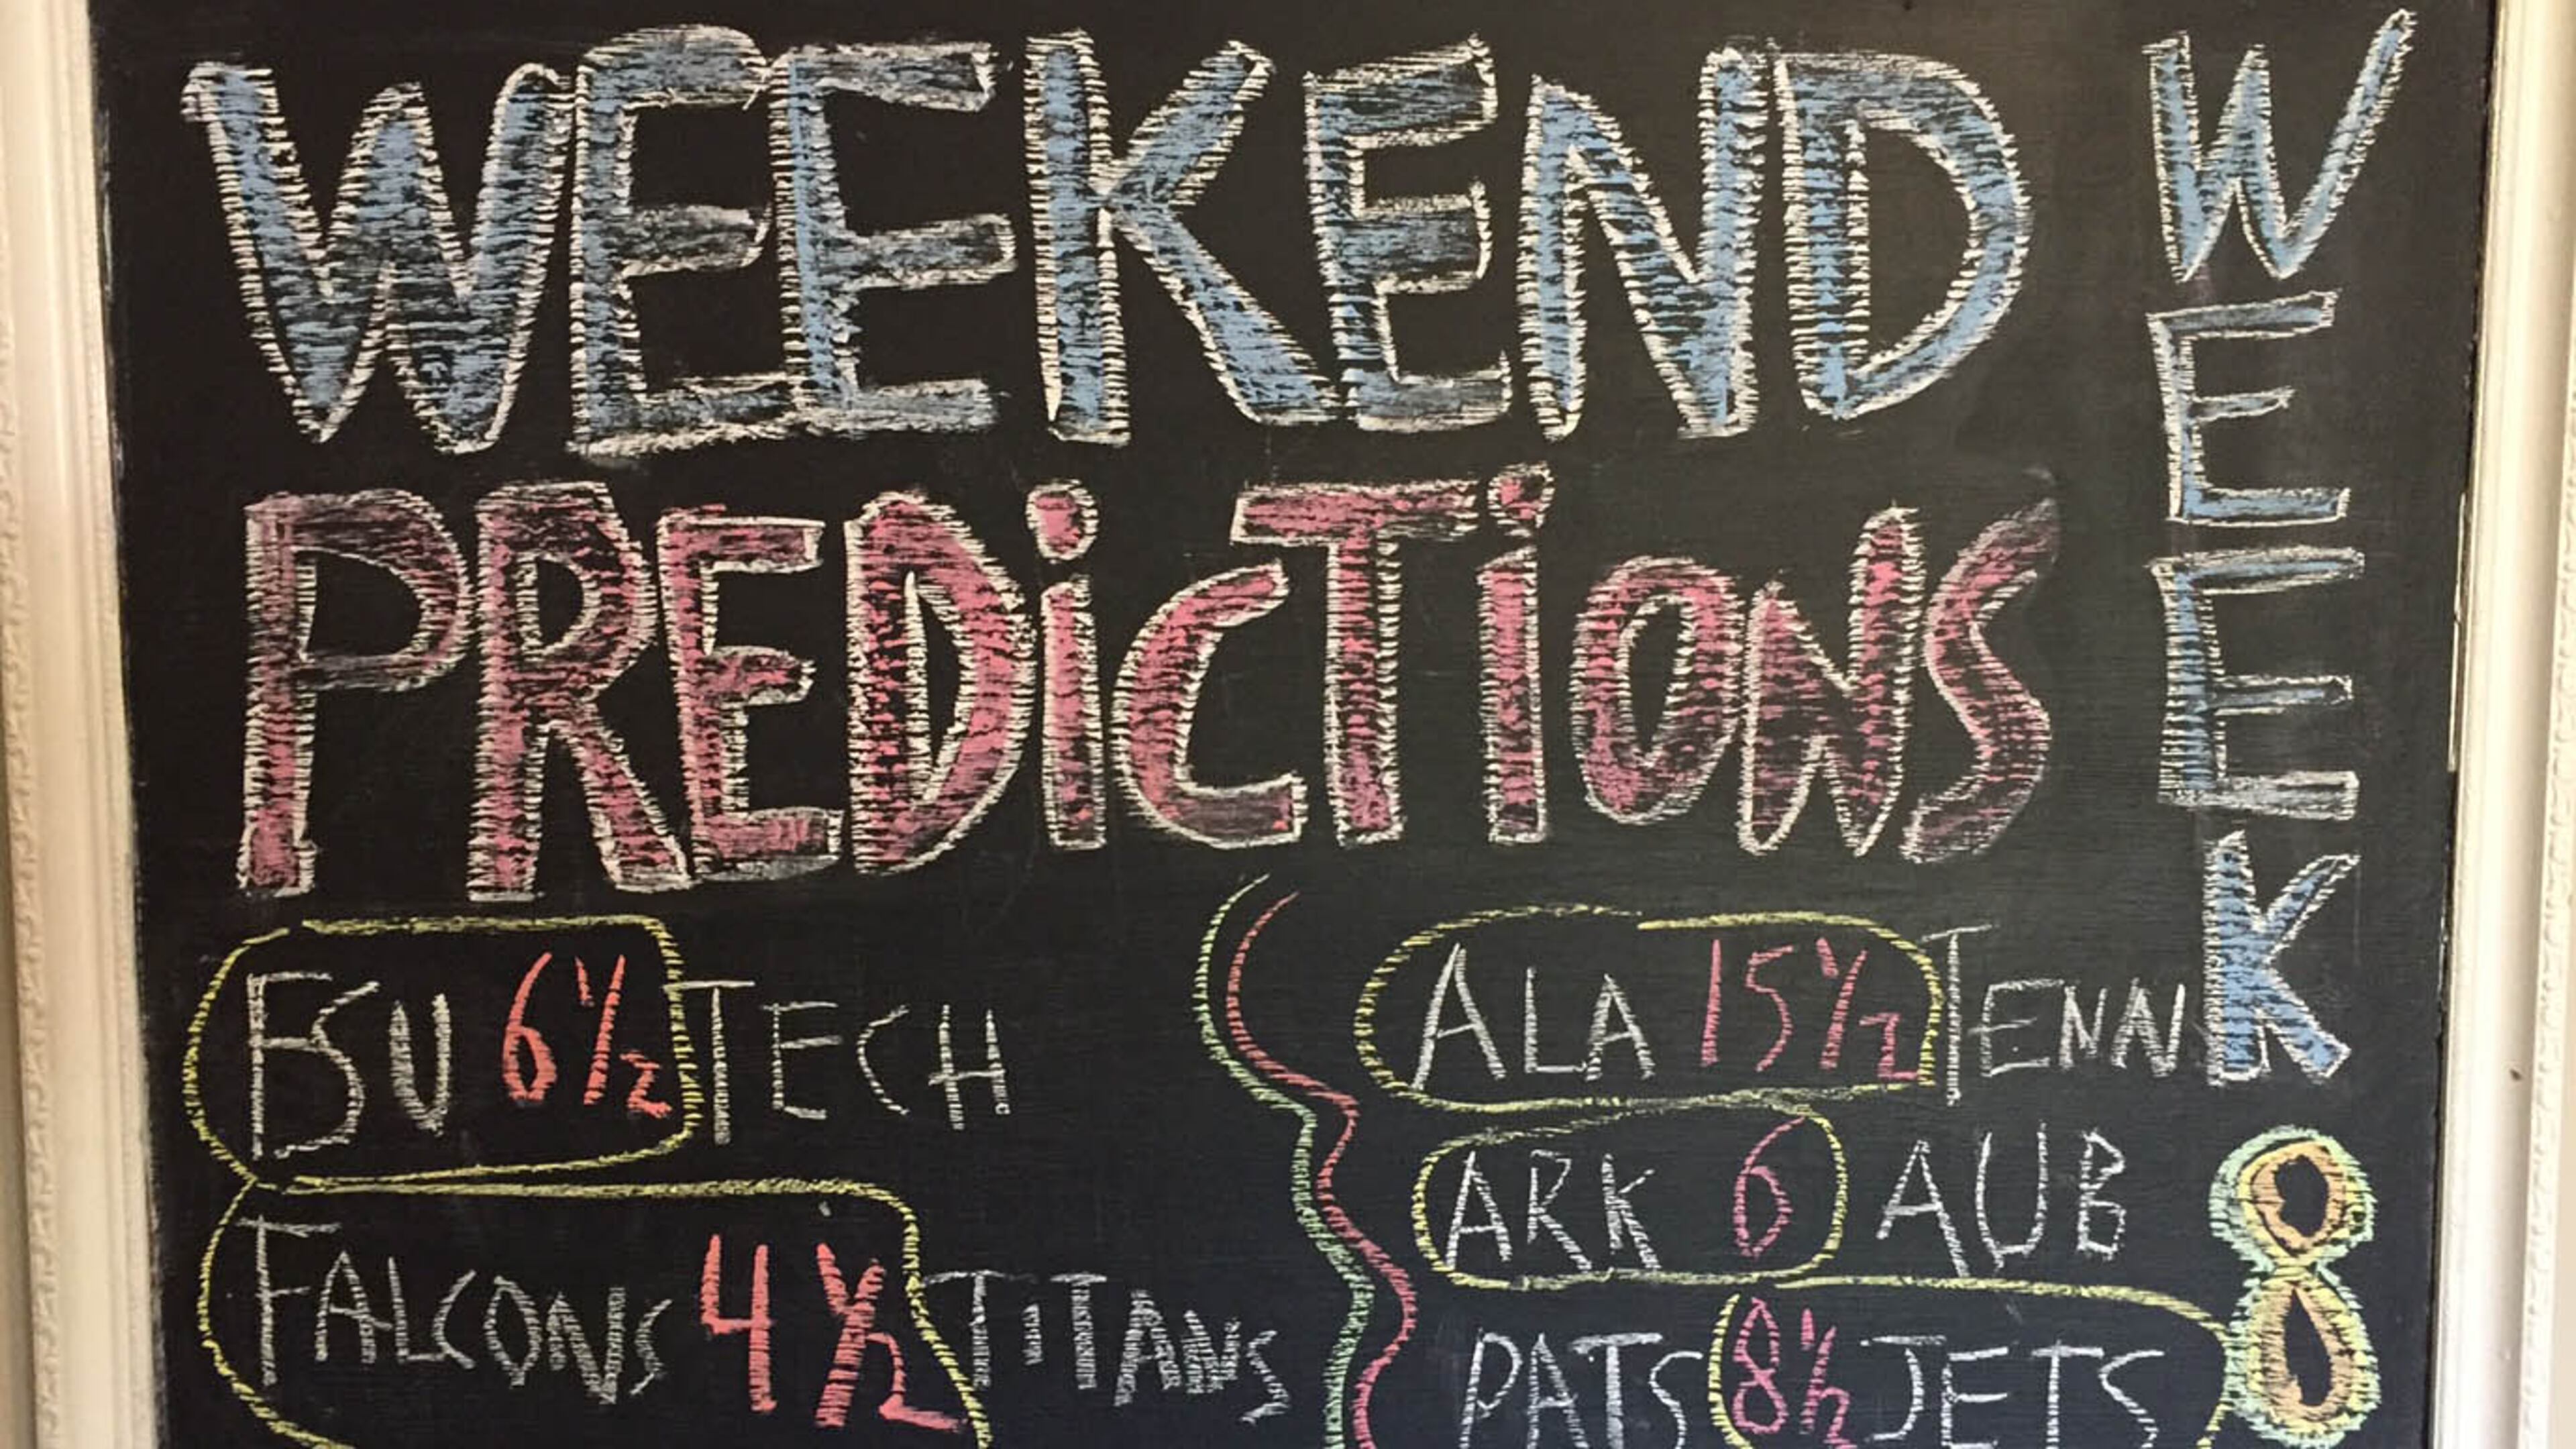 WEEKEND
PREDiCTiONS
WEEK
8
FSU 6½ TECH
FALCONS 4½ TiTANS
ALA 15½ TENN
ARK 6 AUB
PATS 8½ JETS